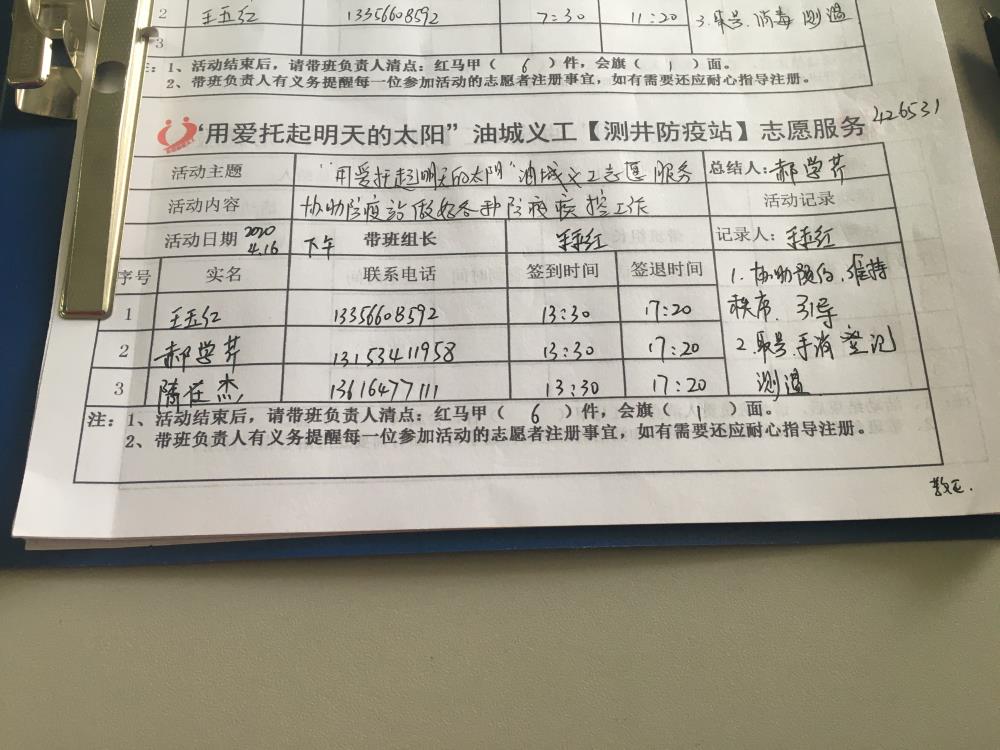 2 王玉红 13356608592 7:30 11:20 3.取号.消毒 测温
3
注：1、活动结束后，请带班负责人清点：红马甲（ 6 ）件，会旗（ 1 ）面。
2、带班负责人有义务提醒每一位参加活动的志愿者注册事宜，如有需要还应耐心指导注册。
“用爱托起明天的太阳”油城义工【测井防疫站】志愿服务 426531
活动主题 “用爱托起明天的太阳”油城义工志愿服务 总结人：郝学芹
活动内容 协助防疫站做好各种防疫疾控工作 活动记录
活动日期 2020 4.16 下午 带班组长 王玉红 记录人：王玉红
序号 实名 联系电话 签到时间 签退时间 1.协助预约.维持
1 王玉红 13356608592 13:30 17:20 秩序.引导
2 郝学芹 13153411958 13:30 17:20 2.取号.手消 登记
3 隋在杰 13616477111 13:30 17:20 测温
注：1、活动结束后，请带班负责人清点：红马甲（ 6 ）件，会旗（ 1 ）面。
2、带班负责人有义务提醒每一位参加活动的志愿者注册事宜，如有需要还应耐心指导注册。